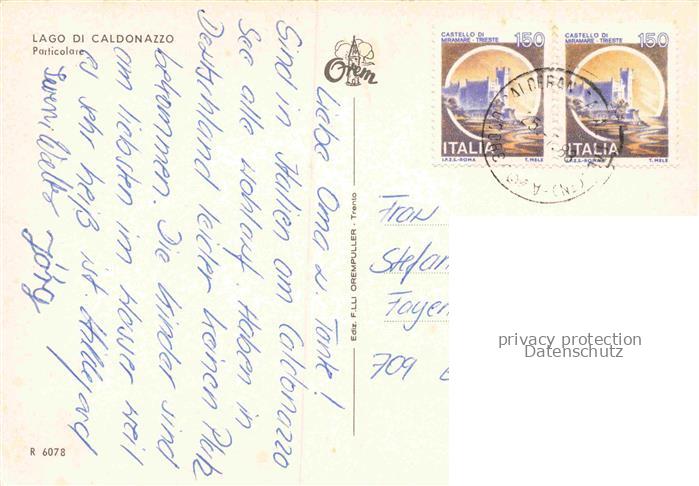 LAGO DI CALDONAZZO
Particolare
Orem
Liebe Oma u. Tante!
Sind in Italien am Caldonazzo
See alle wohlauf. Haben in
Deutschland leider keinen Platz
bekommen. Die Kinder sind
am liebsten im Wasser weil
es sehr heiß ist. Hildegard
Jörg
R 6078
Ediz. F.LLI OREMPULLER - Trento
CASTELLO DI
MIRAMARE - TRIESTE
150
ITALIA
I.P.Z.S.-ROMA
T. MELE
CASTELLO DI
MIRAMARE - TRIESTE
150
ITALIA
I.P.Z.S.-ROMA
T. MELE
Frau
Stefan
Fayen
709
privacy protection
Datenschutz